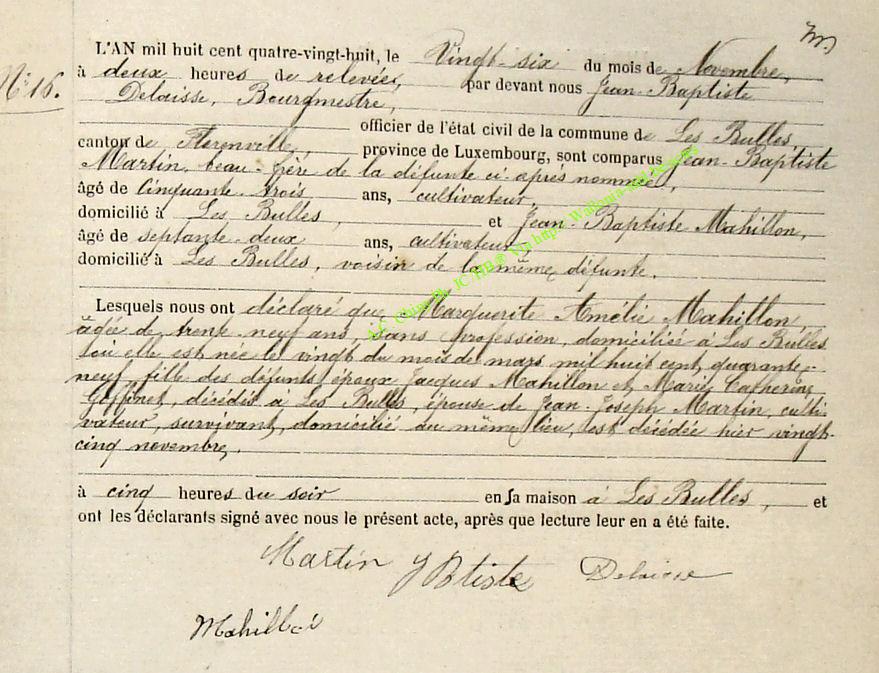 N° 16.
L'AN mil huit cent quatre-vingt-huit, le Vingt-six du mois de Novembre,
à deux heures de relevée, par devant nous Jean-Baptiste
Delaisse, Bourgmestre,
officier de l'état civil de la commune de Les Bulles,
canton de Florenville, province de Luxembourg, sont comparus Jean-Baptiste
Martin, beau-frère de la défunte ci-après nommée,
âgé de Cinquante-trois ans, cultivateur,
domicilié à Les Bulles, et Jean-Baptiste Mahillon,
âgé de septante-deux ans, cultivateur
domicilié à Les Bulles, voisin de la même défunte.
Lesquels nous ont déclaré que Marguerite Amélie Mahillon,
âgée de trente-neuf ans, sans profession, domiciliée à Les Bulles
où elle est née le vingt du mois de mars mil huit cent quarante-
neuf, fille des défunts époux Jacques Mahillon et Marie Catherine
Goffinet, décédés à Les Bulles, épouse de Jean-Joseph Martin, culti-
vateur, survivant, domicilié au même lieu, est décédée hier vingt-
cinq novembre,
à cinq heures du soir en sa maison à Les Bulles, et
ont les déclarants signé avec nous le présent acte, après que lecture leur en a été faite.
Martin J Btiste Delaisse
Mahillon